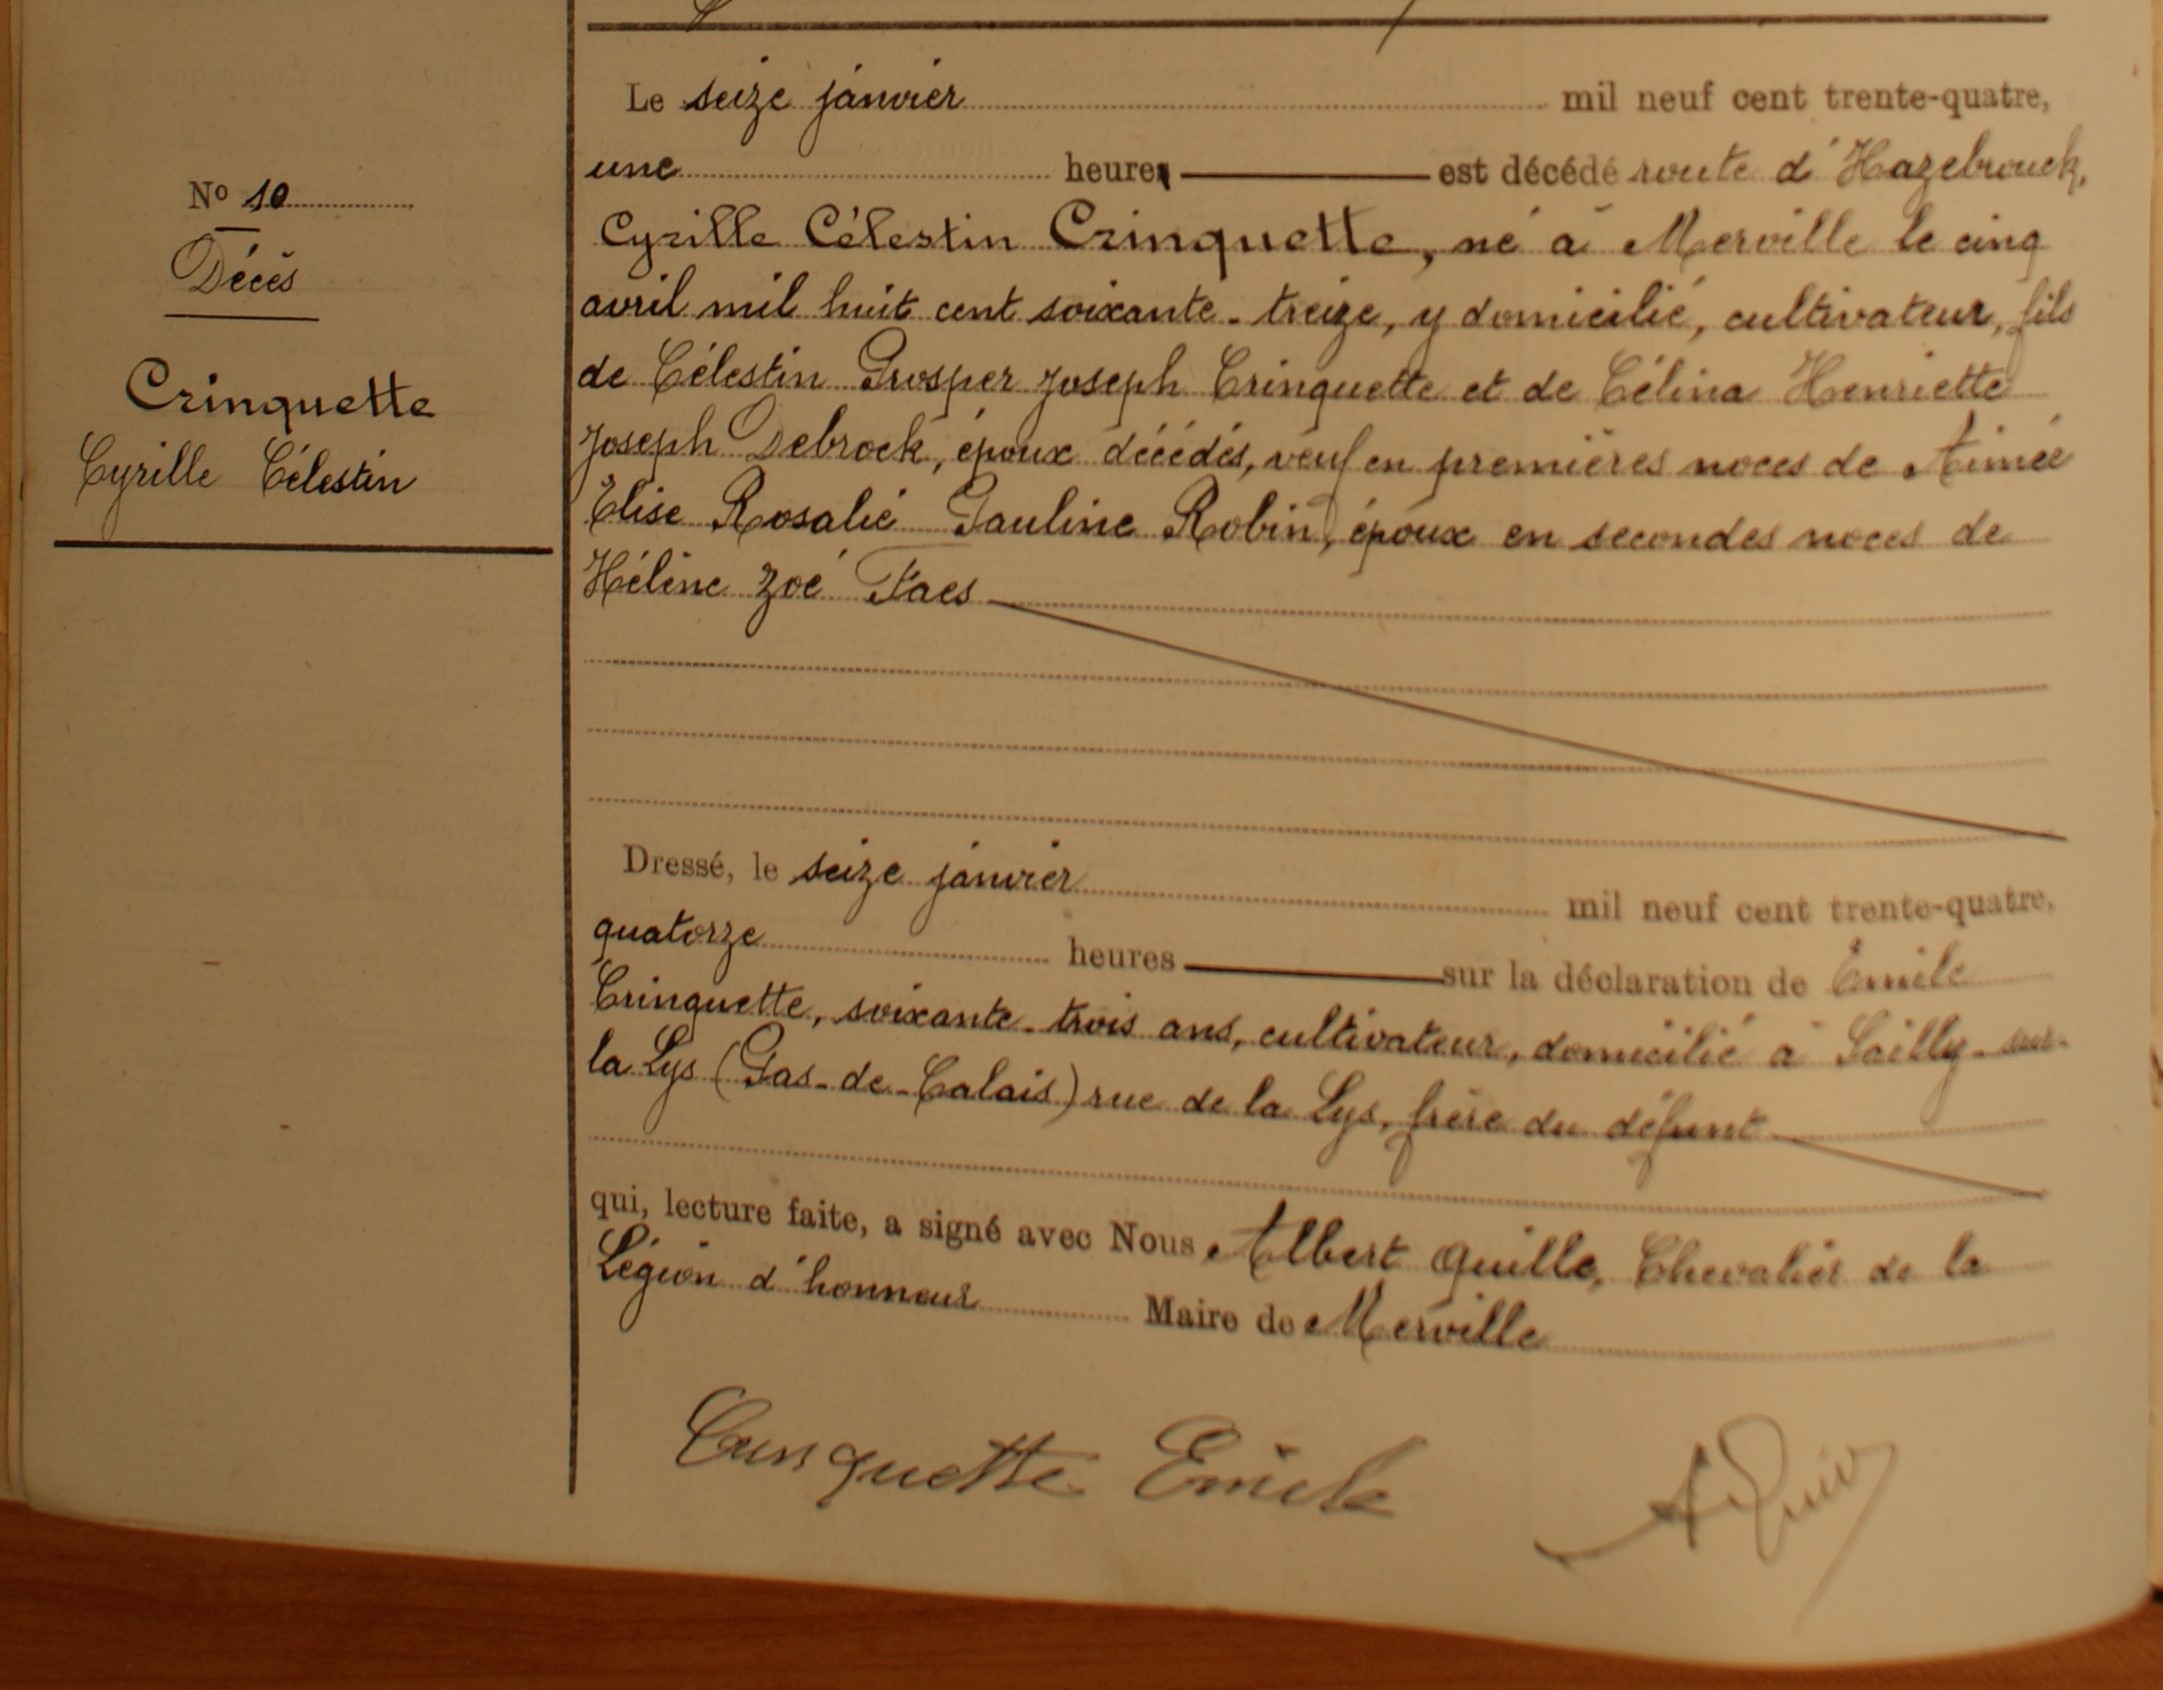 No 10
Décès
Crinquette
Cyrille Célestin
Le seize janvier mil neuf cent trente-quatre,
une heure est décédé route d'Hazebrouck,
Cyrille Célestin Crinquette, né à Merville le cinq
avril mil huit cent soixante-treize, y domicilié, cultivateur, fils
de Célestin Prosper Joseph Crinquette et de Célina Henriette
Joseph Debrock, époux décédés, veuf en premières noces de Aimée
Elise Rosalie Pauline Robin, époux en secondes noces de
Hélène Zoé Faes
Dressé, le seize janvier mil neuf cent trente-quatre,
quatorze heures sur la déclaration de Emile
Crinquette, soixante-trois ans, cultivateur, domicilié à Sailly-sur-
la Lys (Pas-de-Calais) rue de la Lys, frère du défunt
qui, lecture faite, a signé avec Nous Albert Quille, Chevalier de la
Légion d'honneur Maire de Merville
Crinquette Emile